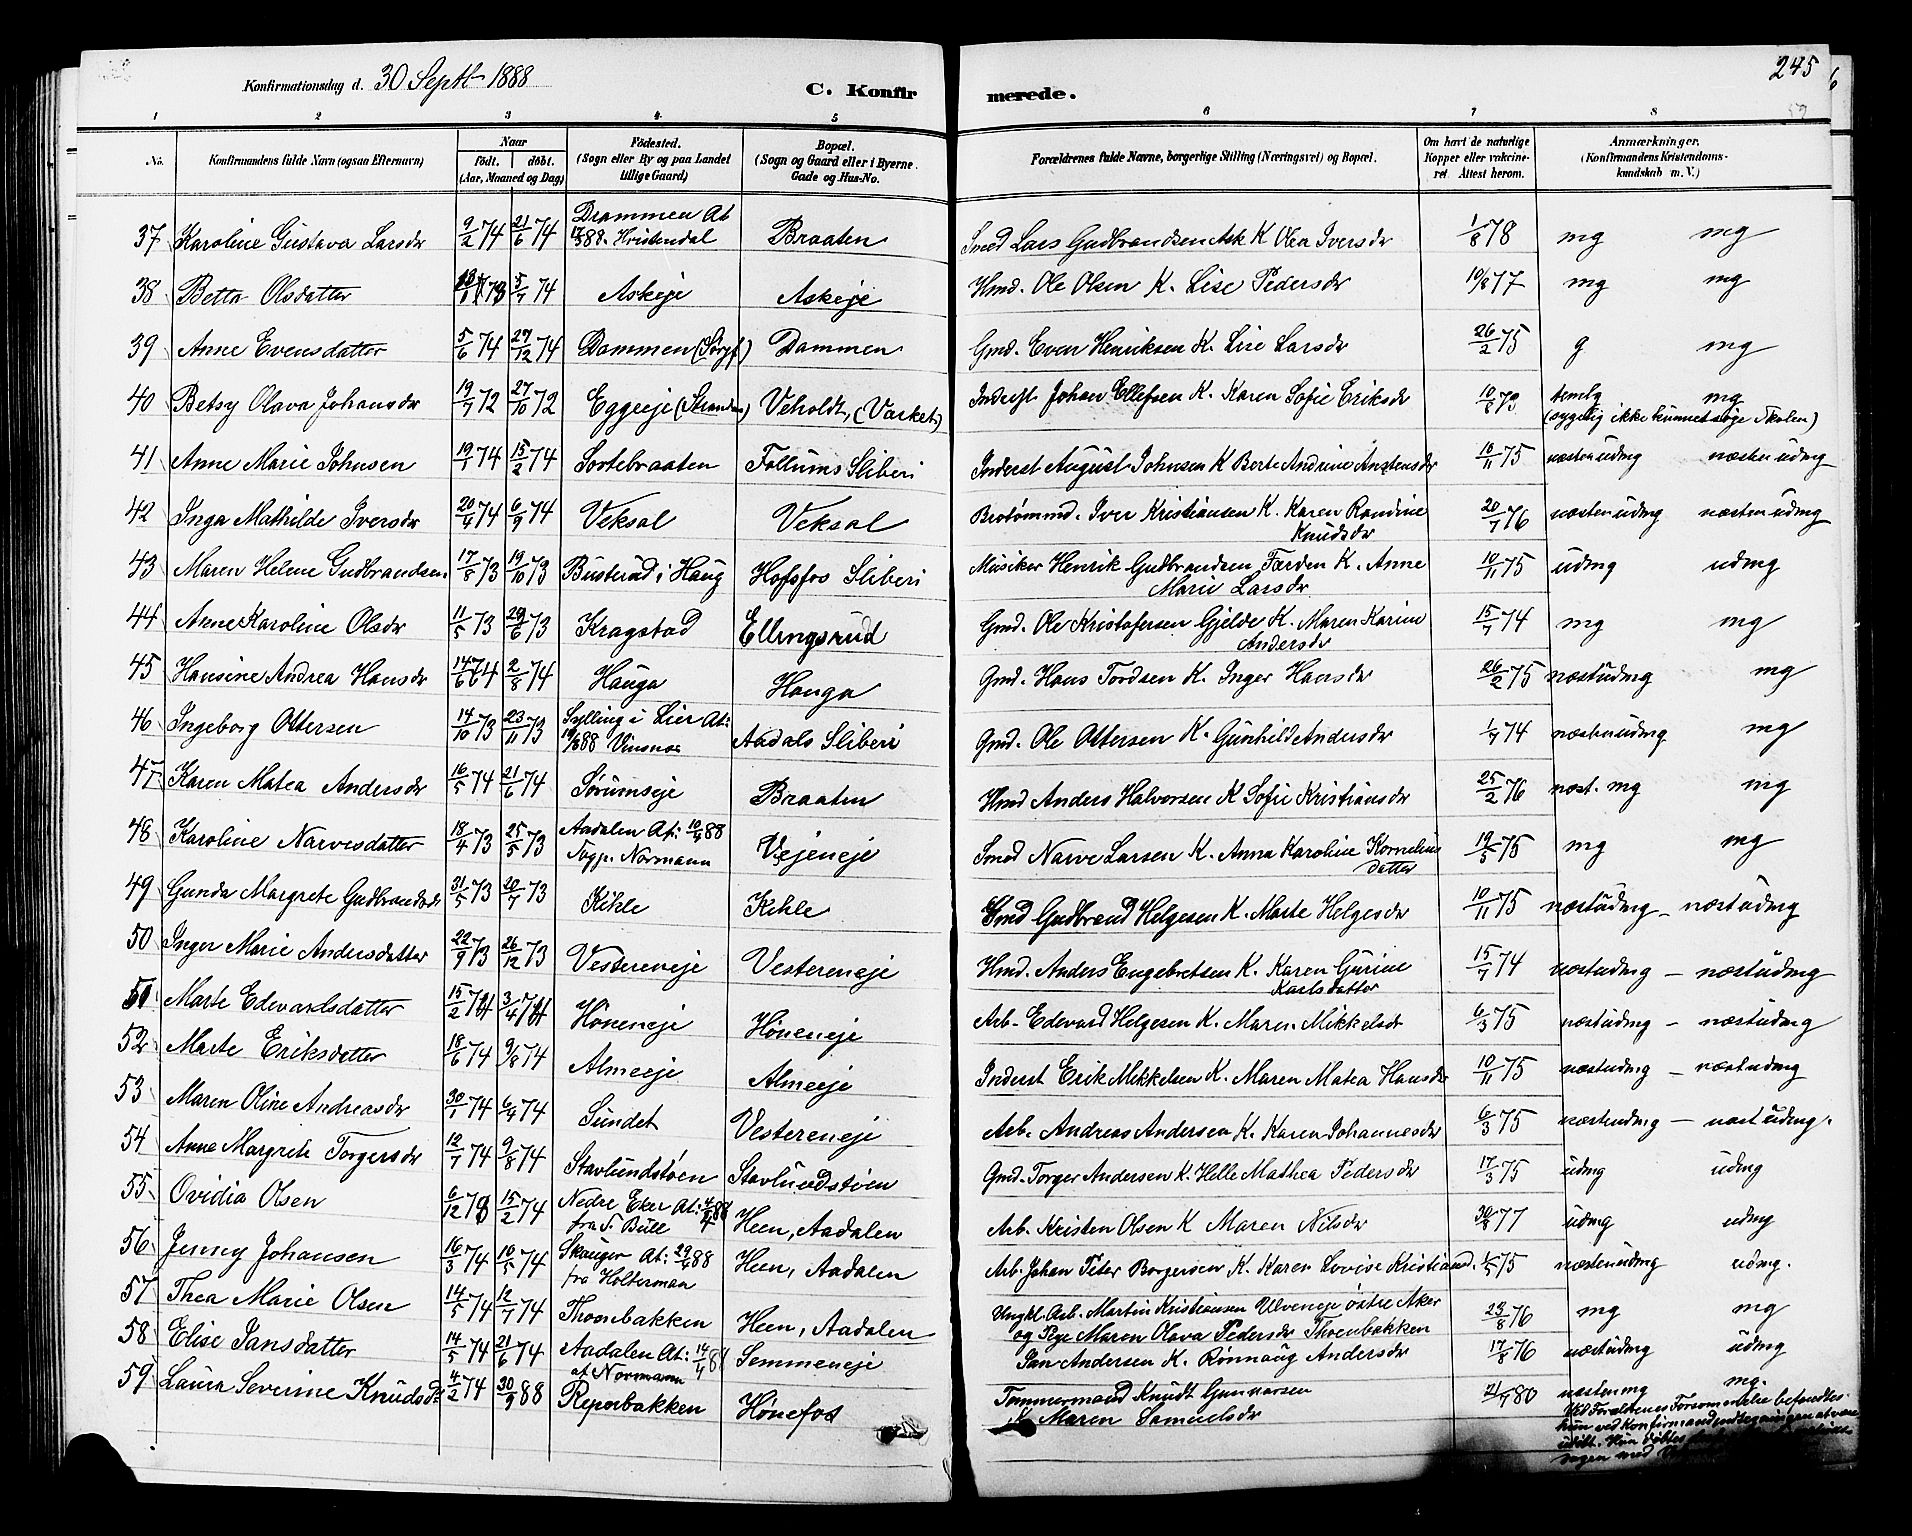 245
Konfirmationsdag d. 30 Septb 1888
C. Konfirmerede.
1 2 3 4 5 6 7 8
No. Konfirmandens fulde Navn (ogsaa Efternavn) Naar født. døbt. (Aar, Maaned og Dag) Fødested. (Sogn eller By og paa Landet tillige Gaard) Bopæl. (Sogn og Gaard eller i Byerne Gade og Hus-No. Forældrenes fulde Navne, borgerlige Stilling (Næringsvei) og Bopæl. Om havt de naturlige Kopper eller vakcineret. Attest herom. Anmærkninger. (Konfirmandens Kristendomskundskab m. V.)
37 Karoline Gustava Larsdr 9/2 74 21/6 74 Drammen At 88. Kristendal Braaten Smed Lars Gudbrandsen Ask K Olea Iversdr 1/8 78 mg mg
38 Betta Olsdatter 73 5/7 74 Askeje Askeje Hmd. Ole Olsen K. Lise Pedersdr 10/8 77 mg mg
39 Anne Evensdatter 5/6 74 27/12 74 Dammen (Sørgf) Dammen Gmd. Even Henriksen K. Lise Larsdr 26/2 75 g mg
40 Betsy Olava Johansdr 19/7 72 27/10 72 Eggeeje (Stranden) Veholdt, (Varket) Inderst Johan Ellefsen K. Karen Sofie Eriksdr 10/8 73 temlg mg
(sygelig ikke kunnet søge Skolen)
41 Anne Marie Johnsen 19/1 74 15/2 74 Sortebraaten Follums Sliberi Inderst August Johnsen K Berte Andrine Anstensdr 10/11 75 næsten udmg næsten udmg
42 Inga Mathilde Iversdr 20/4 74 6/9 74 Veksal Veksal Brotømmd. Iver Kristiansen K. Karen Randine Knudsdr 20/7 76 næsten udmg næsten udmg
43 Maren Helene Gudbrandsen 17/8 73 19/10 73 Busterud i Haug Hofsfos Sliberi Musiker Henrik Gudbrandsen Færden K. Anne Marie Larsdr 10/11 75 udmg udmg
44 Anne Karoline Olsdr 11/5 73 29/6 73 Kragstad Ellingsrud Gmd. Ole Kristofersen Gjelde K. Maren Karine Andersdr 15/7 74 mg mg
45 Hansine Andrea Hansdr 14/6 74 2/8 74 Hauga Hauga Gmd. Hans Tordsen K. Inger Hansdr 26/2 75 næstudmg mg
46 Ingeborg Ottersen 14/10 73 23/11 73 Sylling i Lier At: 88 Vinsnes Aadals Sliberi Gmd. Ole Ottersen K. Gunhild Andersdr 1/7 74 næstenudmg mg
47 Karen Matea Andersdr 16/5 74 21/6 74 Sørumseje Braaten Hmd Anders Halvorsen K Sofie Kristiansdr 25/2 76 næst. mg mg
48 Karoline Narvesdatter 18/4 73 25/5 73 Aadalen At: 10/4 88 Sogp. Normann Vejeneje Smed Narve Larsen K. Anna Karoline Kornelius datter 19/5 75 mg mg
49 Gunda Margrete Gudbrandsdr 31/5 73 20/7 73 Kihle Kihle Gmd Gudbrand Helgesen K. Marte Helgesdr 10/11 75 næstudmg - næstudmg
50 Inger Marie Andersdatter 22/9 73 26/12 73 Vestereneje Vestereneje Hmd. Anders Engebretsen K. Karen Gurine Karlsdatter 15/7 74 næstudmg - næstudmg
51 Marte Edevardsdatter 15/2 74 3/4 74 Høneneje Høneneje Arb. Edevard Helgesen K. Maren Mikkelsdr 6/3 75 næstudmg - næstudmg
52 Marte Eriksdatter 18/6 74 9/8 74 Almeeje Almeeje Inderst Erik Mikkelsen K. Maren Matea Hansdr 10/11 75 næstudmg - næstudmg
53 Maren Oline Andreasdr 30/1 74 6/4 74 Sundet Vestereneje Arb. Andreas Andersen K. Karen Johannesdr 6/3 75 næstudmg - næstudmg.
54 Anne Margrete Torgersdr 12/7 74 9/8 74 Stavlundstøen Stavlundstøen Gmd. Torger Andersen K. Helle Mathea Pedersdr 17/3 75 udmg udmg
55 Ovidia Olsen 6/12 73 15/2 74 Nedre Eker At: 88 fra S. Bull Heen, Aadalen Arb. Kristen Olsen K Maren Nilsdr 30/8 77 udmg udmg
56 Jenny Johansen 16/3 74 10/5 74 Skauger At: 88 fra Holterman Heen, Aadalen Arb. Johan Peter Borgersen K. Karen Lovise Kristiansd. 1/5 75 næstenudmg udmg.
57 Thea Marie Olsen 14/5 74 12/7 74 Thoenbakken Heen, Aadalen Ungkl. Arb. Martin Kristiansen Ulveneje østre Aker og Pige Maren Olava Pedersdr Thoenbakken 23/8 76 mg mg
58 Elise Jansdatter 14/5 74 21/6 74 Aadalen At: 14/4 88 af Normann Semmeneje Jan Andersen K. Rønnaug Andersdr 17/8 76 næstudmg udmg
59 Laura Severine Knudsdr 4/2 74 30/9 88 Reperbakken Hønefos Tømmermand Knudt Gunnarsen K Maren Samuelsdr 80 næstenmg mg.
Ved Forældrenes Forsømmelse befandtes hun ved Konfirmandindtegningen at være udøbt. Hun døbtes